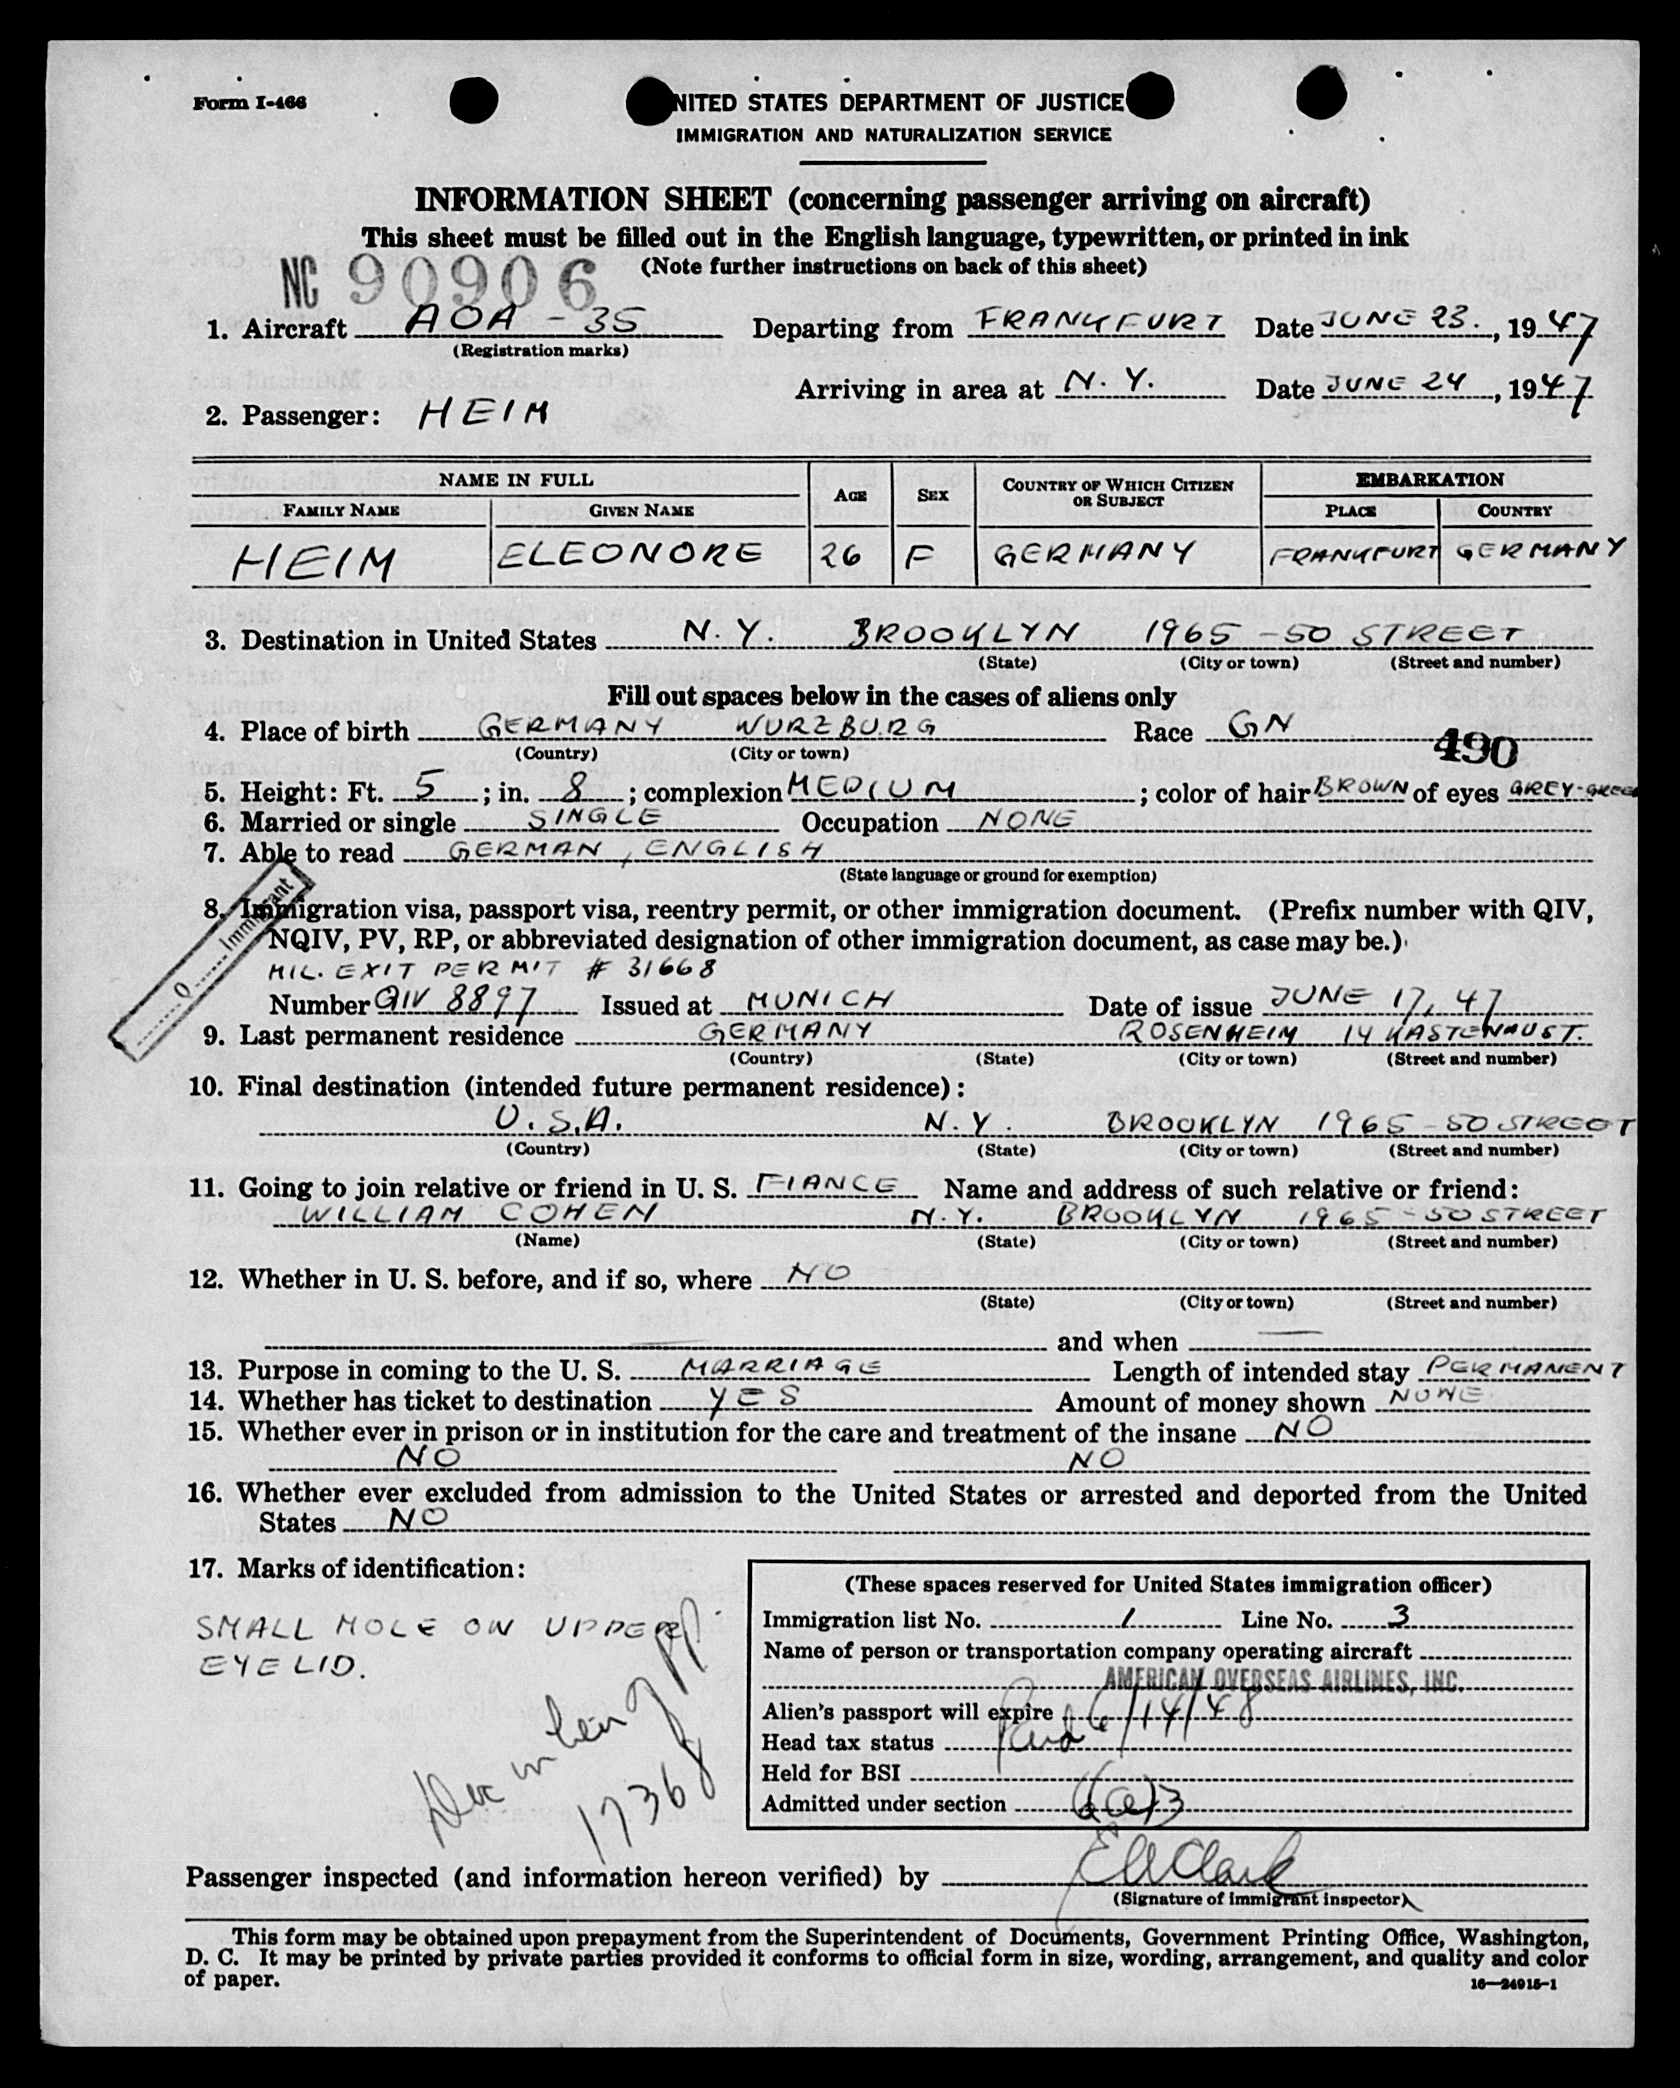 Form I-466
UNITED STATES DEPARTMENT OF JUSTICE
IMMIGRATION AND NATURALIZATION SERVICE
INFORMATION SHEET (concerning passenger arriving on aircraft)
This sheet must be filled out in the English language, typewritten, or printed in ink
(Note further instructions on back of this sheet)
NC 90906
1. Aircraft AOA - 35 Departing from FRANKFURT Date JUNE 23., 1947
(Registration marks)
Arriving in area at N. Y. Date JUNE 24, 1947
2. Passenger: HEIM
NAME IN FULL AGE SEX COUNTRY OF WHICH CITIZEN OR SUBJECT EMBARKATION
FAMILY NAME GIVEN NAME PLACE COUNTRY
HEIM ELEONORE 26 F GERMANY FRANKFURT GERMANY
3. Destination in United States N. Y. BROOKLYN 1965 - 50 STREET
(State) (City or town) (Street and number)
Fill out spaces below in the cases of aliens only
4. Place of birth GERMANY WURZBURG Race GN
(Country) (City or town)
490
5. Height: Ft. 5; in. 8; complexion MEDIUM; color of hair BROWN of eyes GREY-GREEN
6. Married or single SINGLE Occupation NONE
7. Able to read GERMAN, ENGLISH
(State language or ground for exemption)
Q Immigrant
8. Immigration visa, passport visa, reentry permit, or other immigration document. (Prefix number with QIV,
NQIV, PV, RP, or abbreviated designation of other immigration document, as case may be.)
MIL. EXIT PERMIT # 31668
Number QIV 8897 Issued at MUNICH Date of issue JUNE 17, 47
9. Last permanent residence GERMANY ROSENHEIM 14 KASTENAUST.
(Country) (State) (City or town) (Street and number)
10. Final destination (intended future permanent residence):
U.S.A. N.Y. BROOKLYN 1965 - 50 STREET
(Country) (State) (City or town) (Street and number)
11. Going to join relative or friend in U. S. FIANCE Name and address of such relative or friend:
WILLIAM COHEN N.Y. BROOKLYN 1965 - 50 STREET
(Name) (State) (City or town) (Street and number)
12. Whether in U. S. before, and if so, where NO
(State) (City or town) (Street and number)
and when
13. Purpose in coming to the U. S. MARRIAGE Length of intended stay PERMANENT
14. Whether has ticket to destination YES Amount of money shown NONE
15. Whether ever in prison or in institution for the care and treatment of the insane NO
NO NO
16. Whether ever excluded from admission to the United States or arrested and deported from the United
States NO
17. Marks of identification:
SMALL MOLE ON UPPER
EYELID.
17368
(These spaces reserved for United States immigration officer)
Immigration list No. 1 Line No. 3
Name of person or transportation company operating aircraft
AMERICAN OVERSEAS AIRLINES, INC.
Alien's passport will expire 6/14/48
Head tax status Paid
Held for BSI
Admitted under section 6(a)3
Passenger inspected (and information hereon verified) by E W Clark
(Signature of immigrant inspector)
This form may be obtained upon prepayment from the Superintendent of Documents, Government Printing Office, Washington,
D. C. It may be printed by private parties provided it conforms to official form in size, wording, arrangement, and quality and color
of paper.
16—24915-1